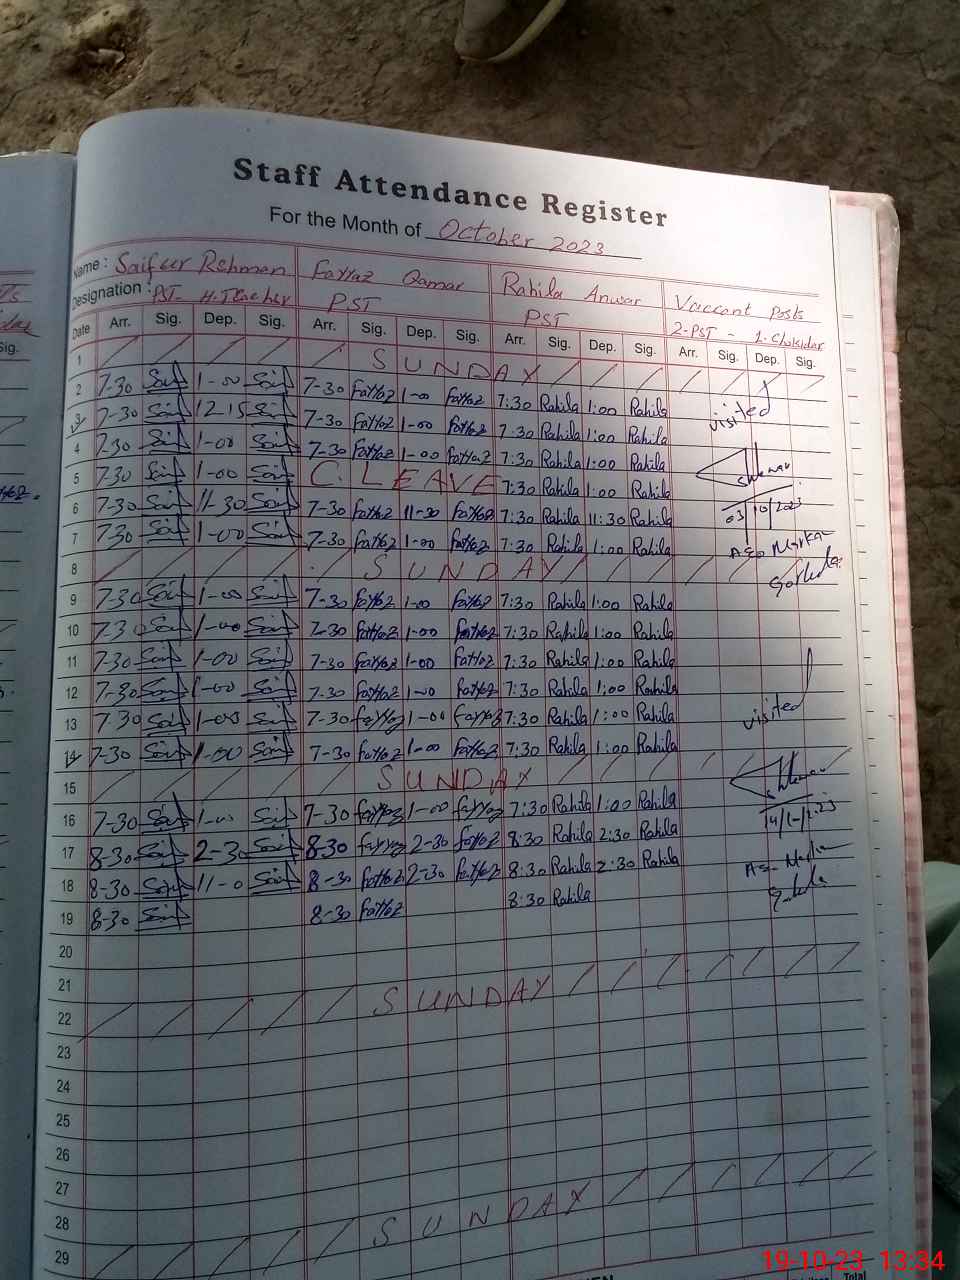 Staff Attendance Register
For the Month of October 2023
Name: Saifeur Rehman Fayyaz Qamar Rahila Anwar Vaccant Posts
Designation: PST- H.Teacher PST PST 2-PST - 1. Chokidar
Date Arr. Sig. Dep. Sig. Arr. Sig. Dep. Sig. Arr. Sig. Dep. Sig. Arr. Sig. Dep. Sig.
1 SUNDAY
2 7-30 Saif 1-00 Saif 7-30 Fayyaz 1-00 Fayyaz 7:30 Rahila 1:00 Rahila
visited
3 7-30 Saif 12-15 Saif 7-30 Fayyaz 1-00 Fayyaz 7:30 Rahila 1:00 Rahila
4 7-30 Saif 1-00 Saif 7-30 Fayyaz 1-00 Fayyaz 7:30 Rahila 1:00 Rahila
5 7-30 Saif 1-00 Saif C. LEAVE 7:30 Rahila 1:00 Rahila
03/10/2023
6 7-30 Saif 11-30 Saif 7-30 Fayyaz 11-30 Fayyaz 7:30 Rahila 11:30 Rahila
7 7-30 Saif 1-00 Saif 7-30 Fayyaz 1-00 Fayyaz 7:30 Rahila 1:00 Rahila
Markaz
8 SUNDAY
9 7-30 Saif 1-00 Saif 7-30 Fayyaz 1-00 Fayyaz 7:30 Rahila 1:00 Rahila
10 7-30 Saif 1-00 Saif 7-30 Fayyaz 1-00 Fayyaz 7:30 Rahila 1:00 Rahila
11 7-30 Saif 1-00 Saif 7-30 Fayyaz 1-00 Fayyaz 7:30 Rahila 1:00 Rahila
12 7-30 Saif 1-00 Saif 7-30 Fayyaz 1-00 Fayyaz 7:30 Rahila 1:00 Rahila
13 7-30 Saif 1-00 Saif 7-30 Fayyaz 1-00 Fayyaz 7:30 Rahila 1:00 Rahila
visited
14 7-30 Saif 1-00 Saif 7-30 Fayyaz 1-00 Fayyaz 7:30 Rahila 1:00 Rahila
15 SUNDAY
16 7-30 Saif 1-00 Saif 7-30 Fayyaz 1-00 Fayyaz 7:30 Rahila 1:00 Rahila
17 8-30 Saif 2-30 Saif 8-30 Fayyaz 2-30 Fayyaz 8:30 Rahila 2:30 Rahila
18 8-30 Saif 11-0 Saif 8-30 Fayyaz 2-30 Fayyaz 8:30 Rahila 2:30 Rahila
19 8-30 Saif 8-30 Fayyaz 8:30 Rahila
20
21
22 SUNDAY
23
24
25
26
27
28
29 SUNDAY
19-10-23 13:34
Total